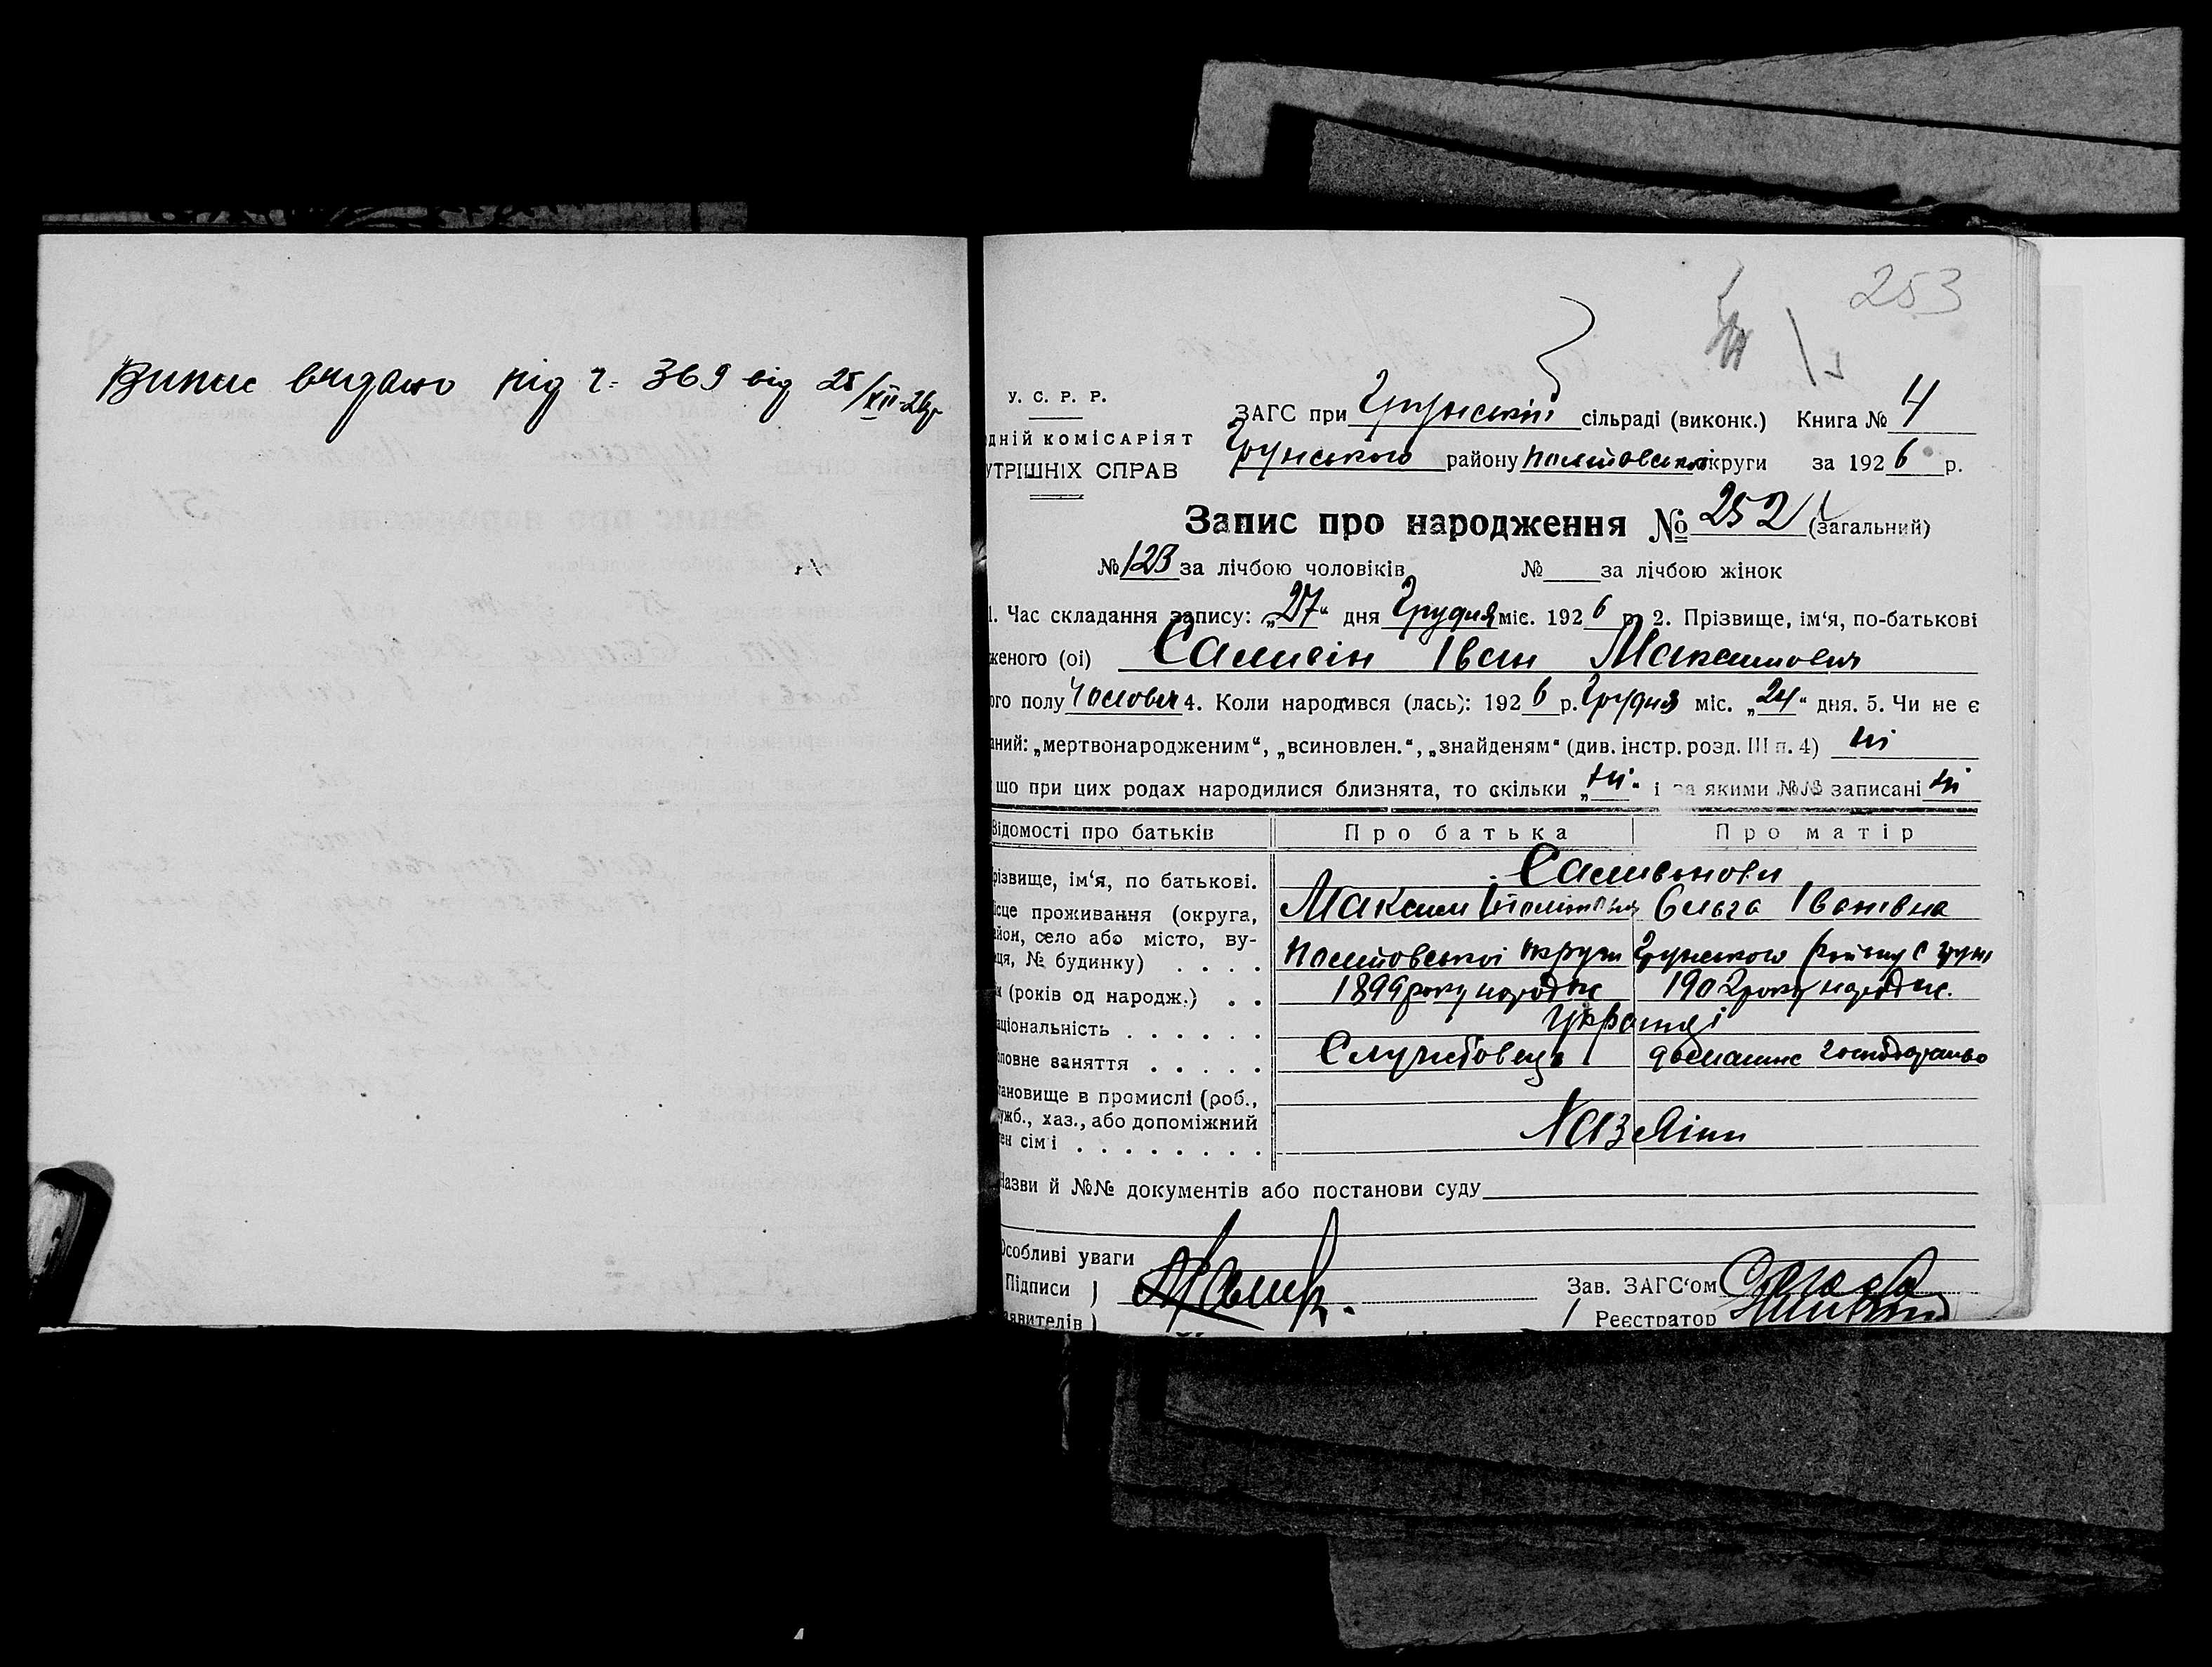 Випис видано під ч. 369 від 25/XII-26р
253
У. С. Р. Р.
ЗАГС при Грунській сільраді (виконк.) Книга № 4
дній комісаріят
Грунського району Полтовської округи за 1926 р.
утрішніх справ
Запис про народження № 252 (загальний)
№ 123 за лічбою чоловіків № за лічбою жінок
1. Час складання запису: „27“ дня Грудня міс. 1926 р. 2. Прізвище, ім‘я, по-батькові
женого (ої) Самвін Іван Максимович
ого полу Чоловіч 4. Коли народився (лась): 1926 р. Грудня міс. „24“ дня. 5. Чи не є
аний: „мертвонародженим“, „всиновлен.“, „знайденям“ (див. інстр. розд. III п. 4) ні
що при цих родах народилися близнята, то скільки „ні“ і за якими №№ записані ні
Відомості про батьків Про батька Про матір
різвище, ім‘я, по батькові.
Максим Ольга Іванівна
ісце проживання (округа,
йон, село або місто, ву-
ця, № будинку) . . . . Полтовської округи Грунського району с Грунь
(років од народж.) . . 1899 року народж 1902 року народж.
аціональність . . . . . . Українці
оловне заняття . . . . . Службовець домашнє господарство
тановище в промислі (роб.,
ужб., хаз., або допоміжний
ен сім‘ї . . . . . . . . . Хазяїни
Назви й №№ документів або постанови суду
Особливі уваги
Підписи ) Зав. ЗАГС‘ом
явителів ) Реєстратор